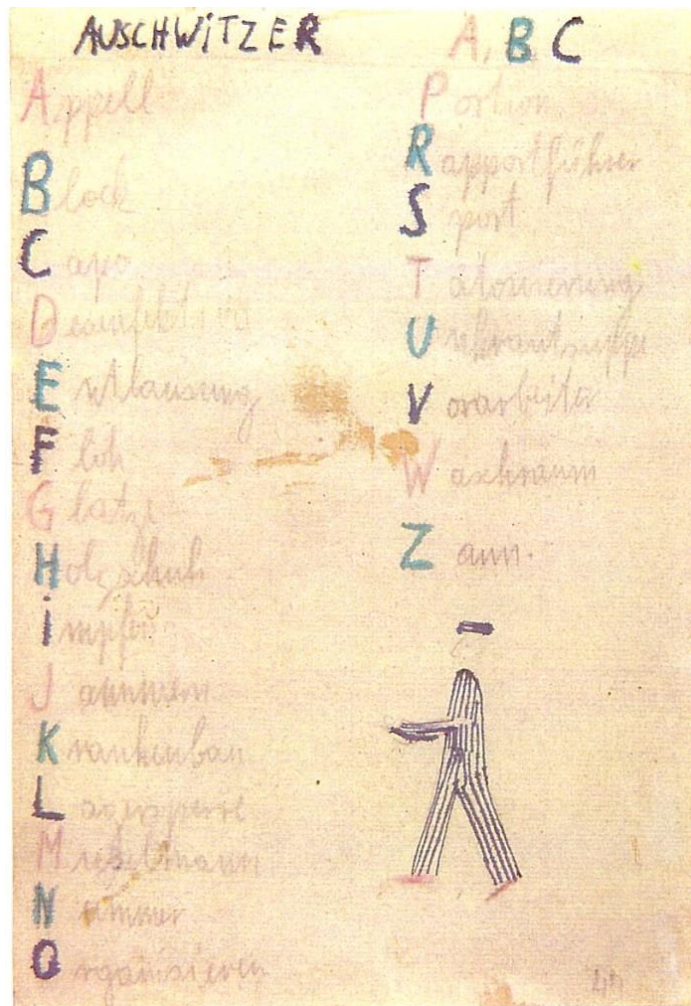 AUSCHWiTZER A, B C
Appell
Block
Capo
Desinfektion
Entlausung
Floh
Glatze
Holzschuh
impfen
Jammern
Krankenbau
Lagersperre
Muselmann
Nummer
Organisieren
Portion
Rapportführer
Sport
Tätowierung
Unkrautsuppe
Vorarbeiter
Waschraum
Zaun.